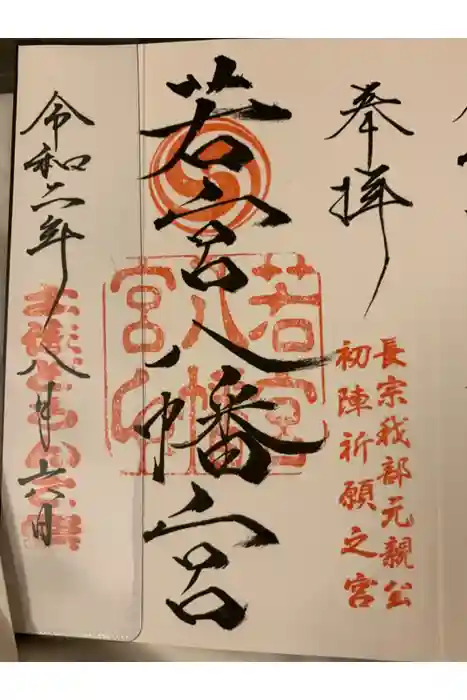 奉拝
長宗我部元親公
初陣祈願之宮
若宮八幡宮
若宮
八幡
宮印
令和六年八月六日